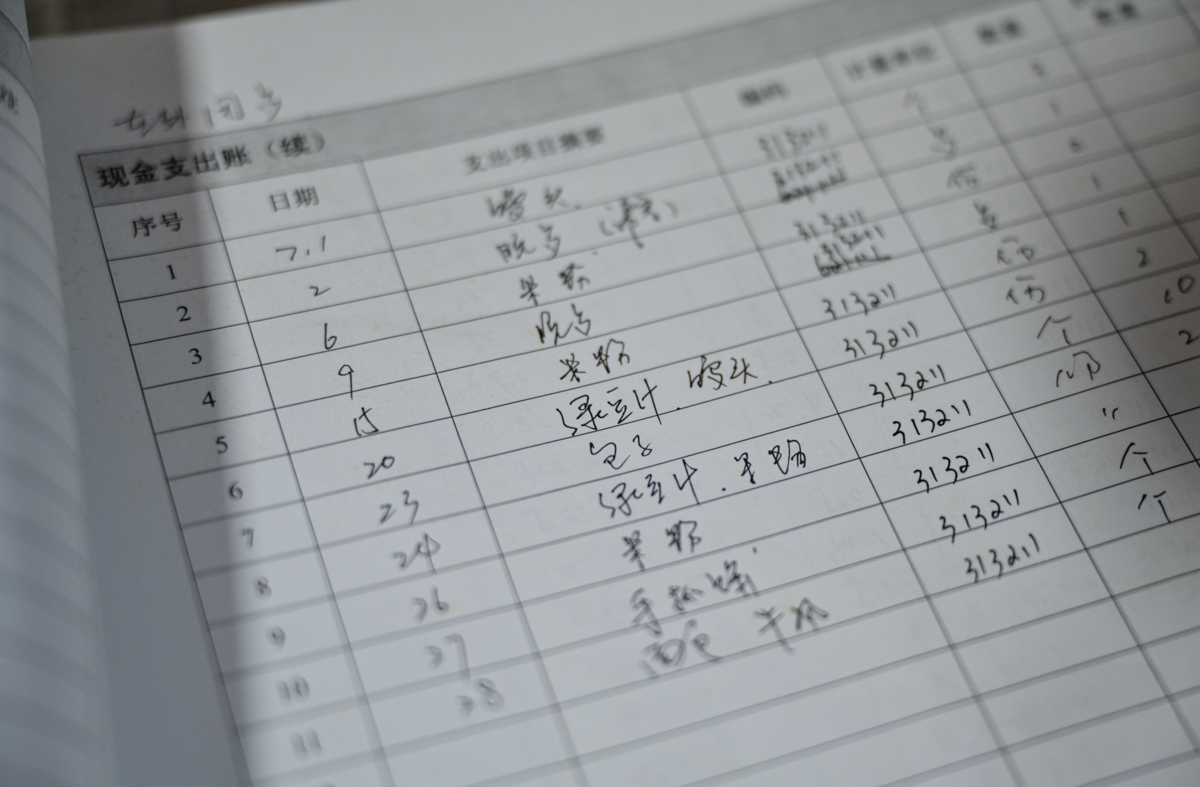 现金支出账（续）
序号 日期 支出项目摘要 编码 计量单位 数量
1 7.1 馒头 313211 个
2 2 313211 1
3 6 米粉 313211 份 2
4 9 313211 1
5 15 米粉 313211 份 1
6 20 绿豆汁.馒头. 313211 份 2
7 23 包子 313211 个 10
8 24 绿豆汁.米粉 313211 2
9 26 米粉 313211 〃
10 27 手抓饼. 313211 个
11 28 面包 313211 个